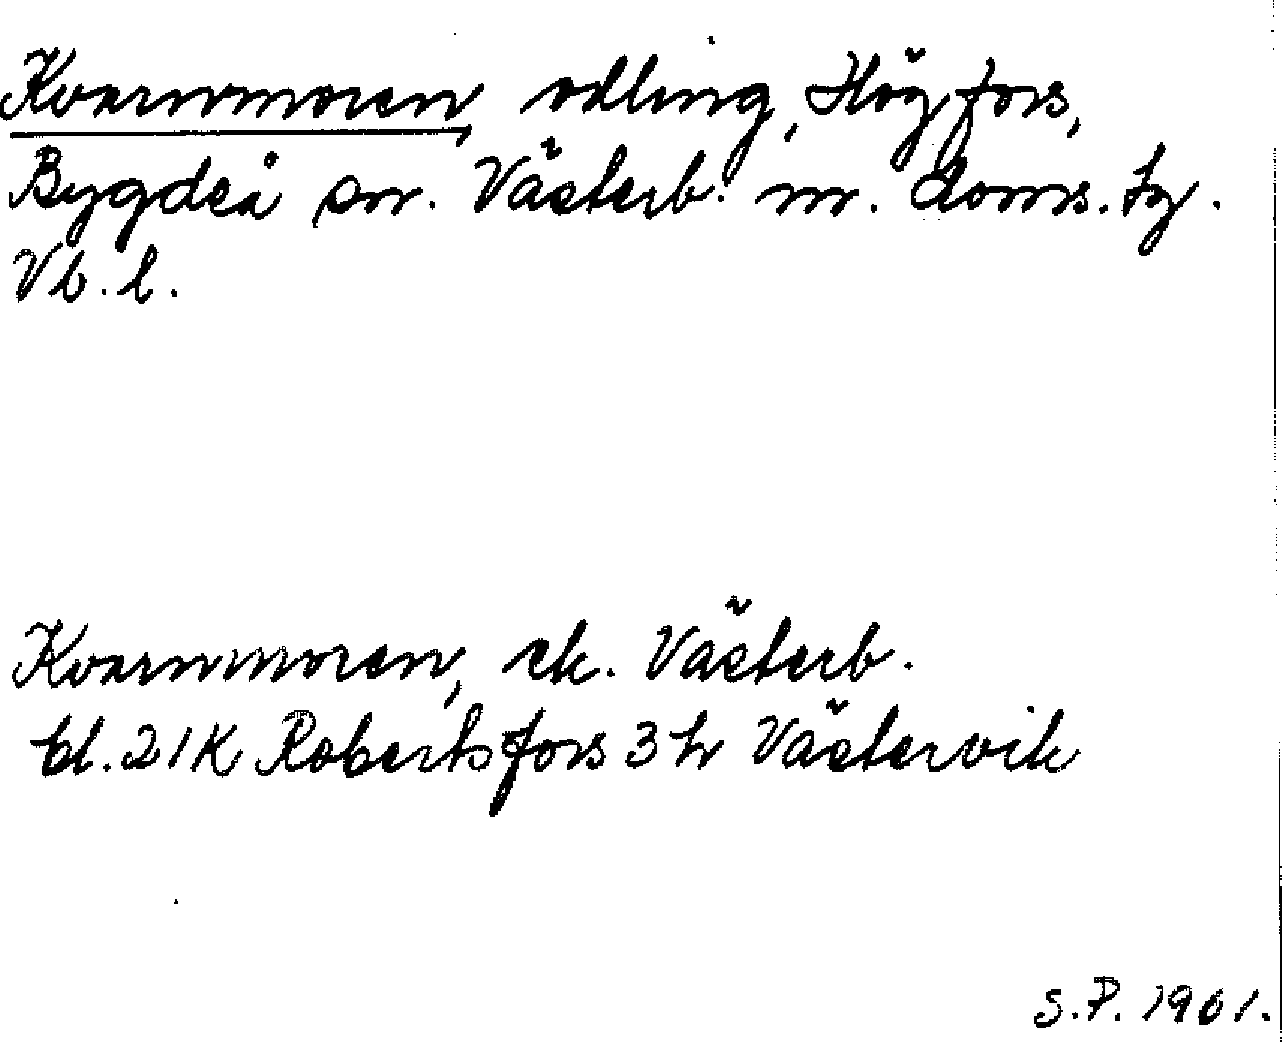 Kvarnmoren, odling, Högfors,
Bygdeå sn. Västerb. m. doms. tg.
Vb. l.
Kvarnmoren, ek. Västerb.
bl. 21K Robertsfors 3 h Västervik
S.P. 1961.